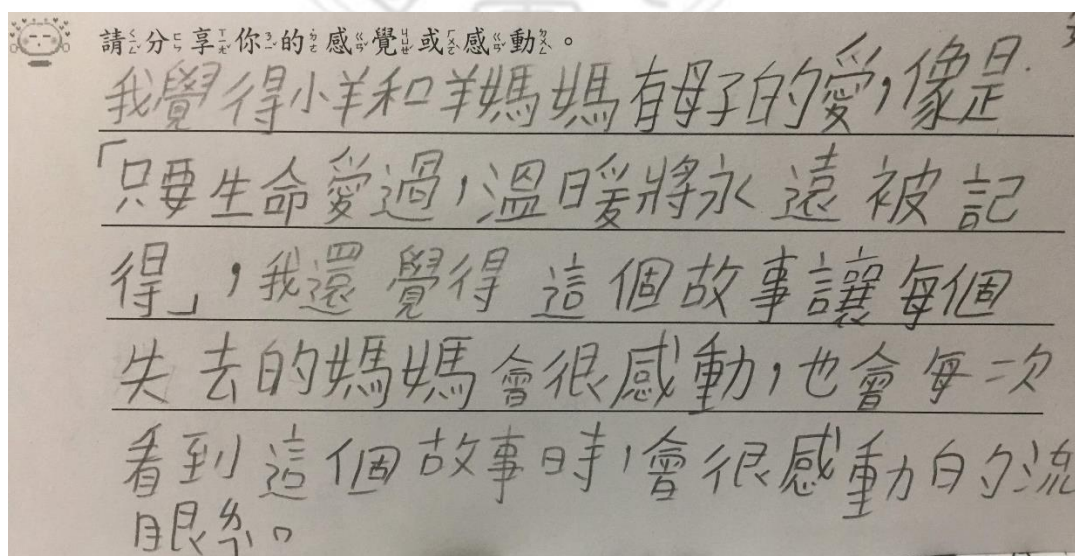 請分享你的感覺或感動。
我覺得小羊和羊媽媽有母子的愛，像是
「只要生命愛過，溫暖將永遠被記
得」，我還覺得這個故事讓每個
失去的媽媽會很感動，也會每次
看到這個故事時，會很感動的流
眼糸。